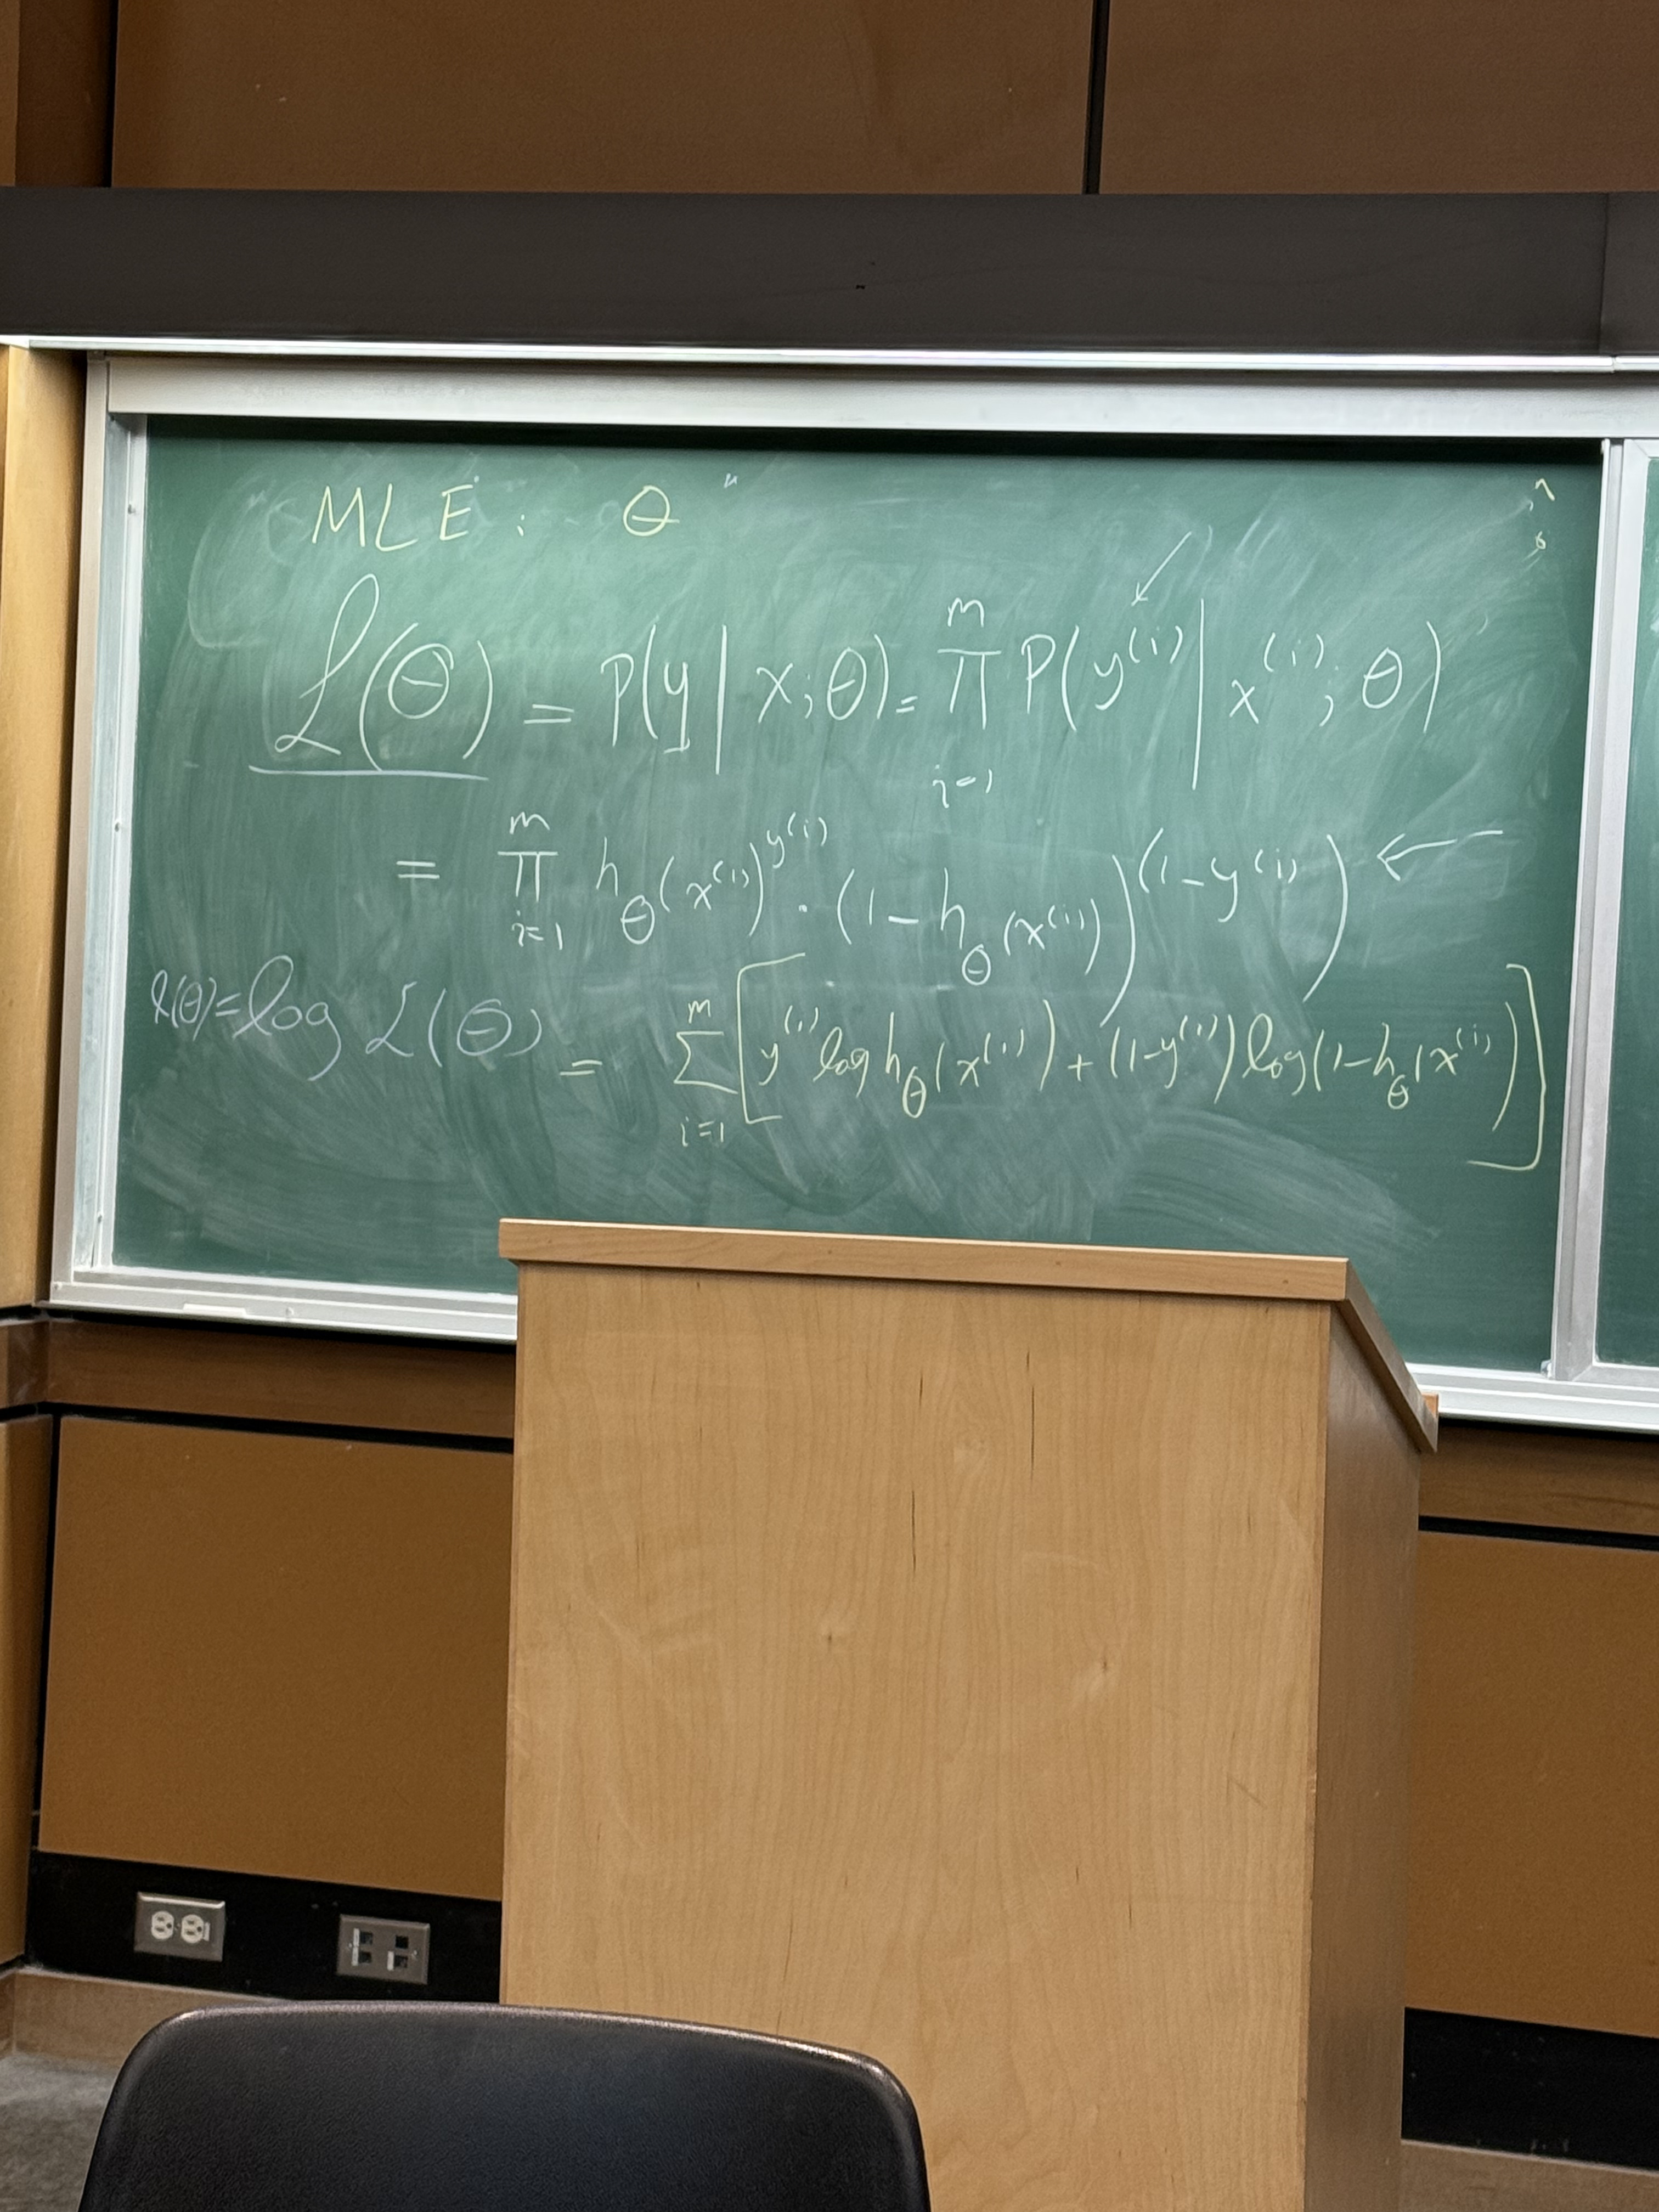 MLE: θ
ℒ(θ) = P(y | x; θ) = ∏_{i=1}^{m} P(y^{(i)} | x^{(i)}; θ)
= ∏_{i=1}^{m} h_θ(x^{(i)})^{y^{(i)}} · (1 - h_θ(x^{(i)}))^{(1 - y^{(i)})} ←
l(θ) = log ℒ(θ) = ∑_{i=1}^{m} [y^{(i)} log h_θ(x^{(i)}) + (1-y^{(i)}) log(1-h_θ(x^{(i)})]